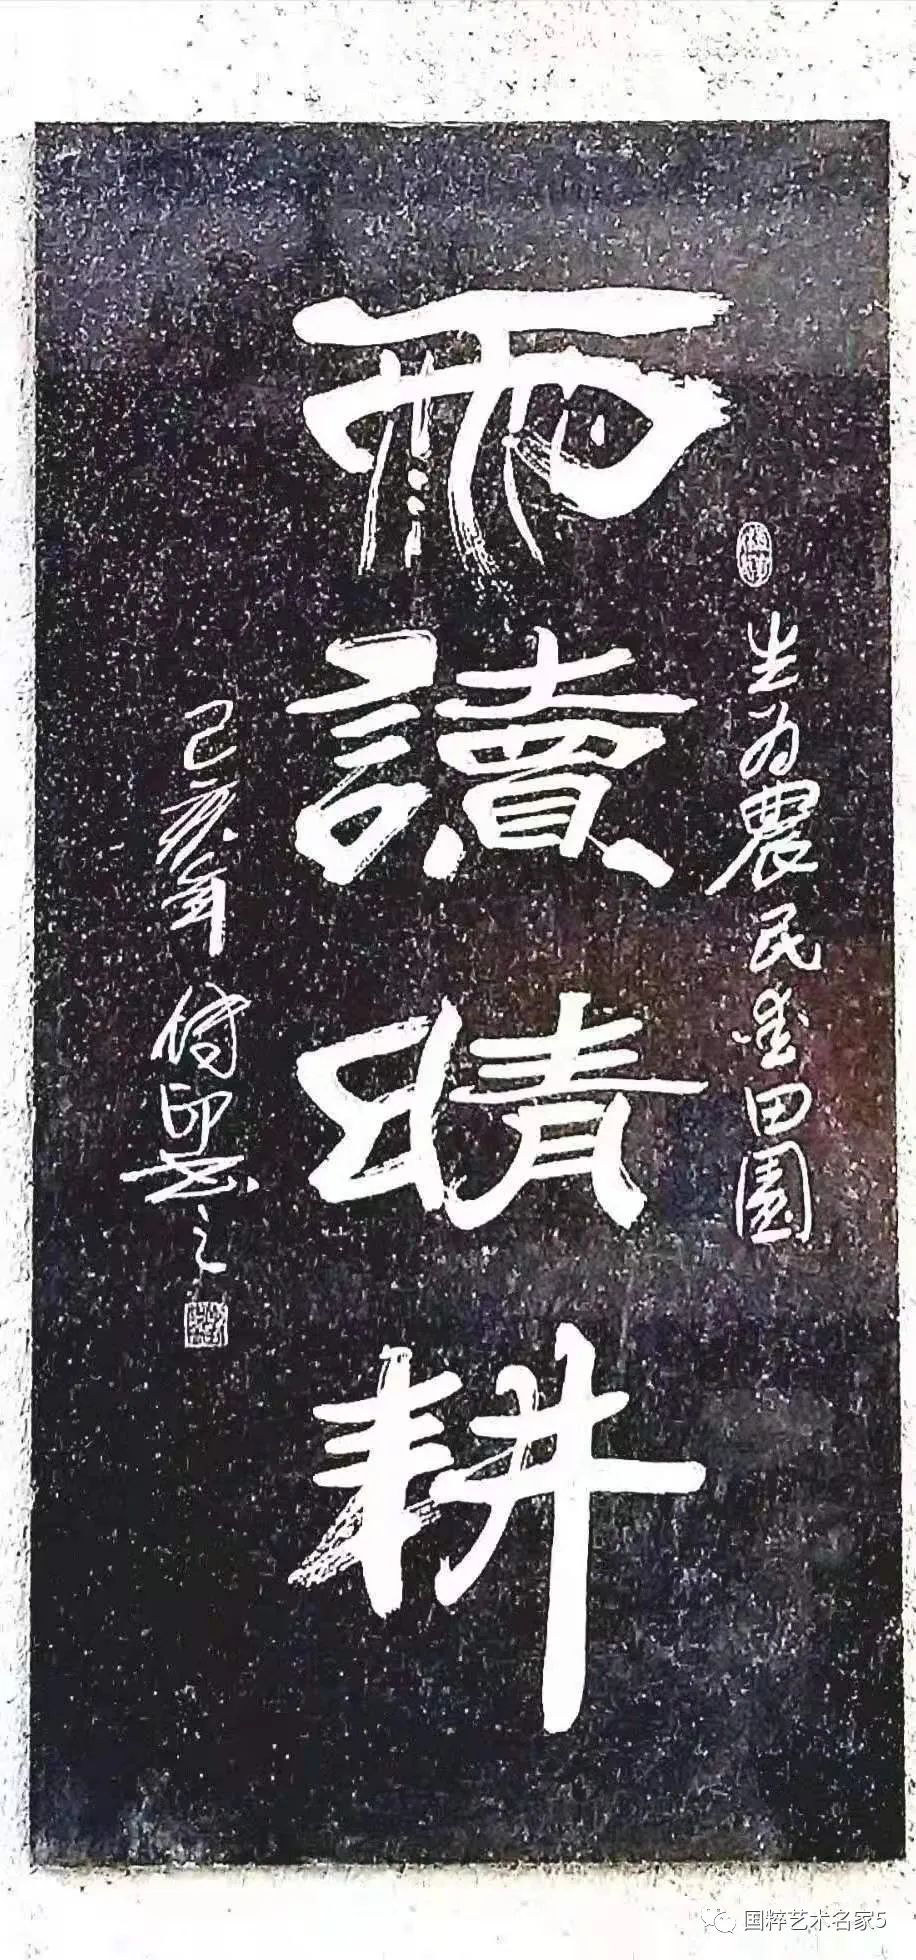 生为農民爱田園
雨讀晴耕
己亥年 书之
国粹艺术名家5